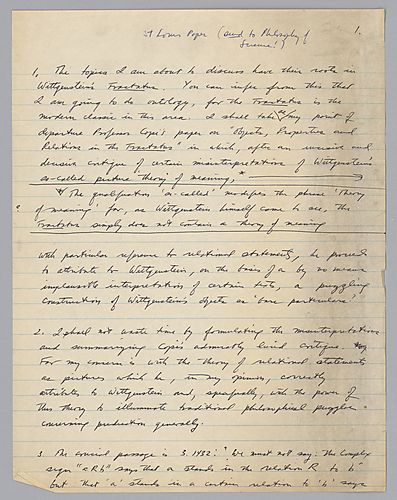 St Louis Paper (send to Philosophy of
Science!)
1.
1. The topics I am about to discuss have their roots in
Wittgenstein's Tractatus. You can infer from this that
I am going to do ontology, for the Tractatus is the
modern classic in this area. I shall take as my point of
departure Professor Copi's paper on "Objects, Properties and
Relations in the Tractatus" in which, after an incisive and
decisive critique of certain misinterpretations of Wittgenstein's
so-called picture theory of meaning,*
* The qualification 'so-called' modifies the phrase 'theory
of meaning' for, as Wittgenstein himself came to see, the
Tractatus simply does not contain a theory of meaning
with particular reference to relational statements, he proceeds
to attribute to Wittgenstein, on the basis of a by no means
implausible interpretation of certain texts, a puzzling
construction of Wittgenstein's objects as 'bare particulars'.
2. I shall not waste time by formulating the misinterpretations
and summarizing Copi's admirably lucid critique.
For my concern is with the theory of relational statements
as pictures which he, in my opinion, correctly
attributes to Wittgenstein and, specifically, with the power of
this theory to illuminate traditional philosophical puzzles
concerning predication generally.
3. The crucial passage is 3.1432: "We must not say: The complex
sign "aRb" says that a stands in the relation R to b"
but that 'a' stands in a certain relation to 'b' says